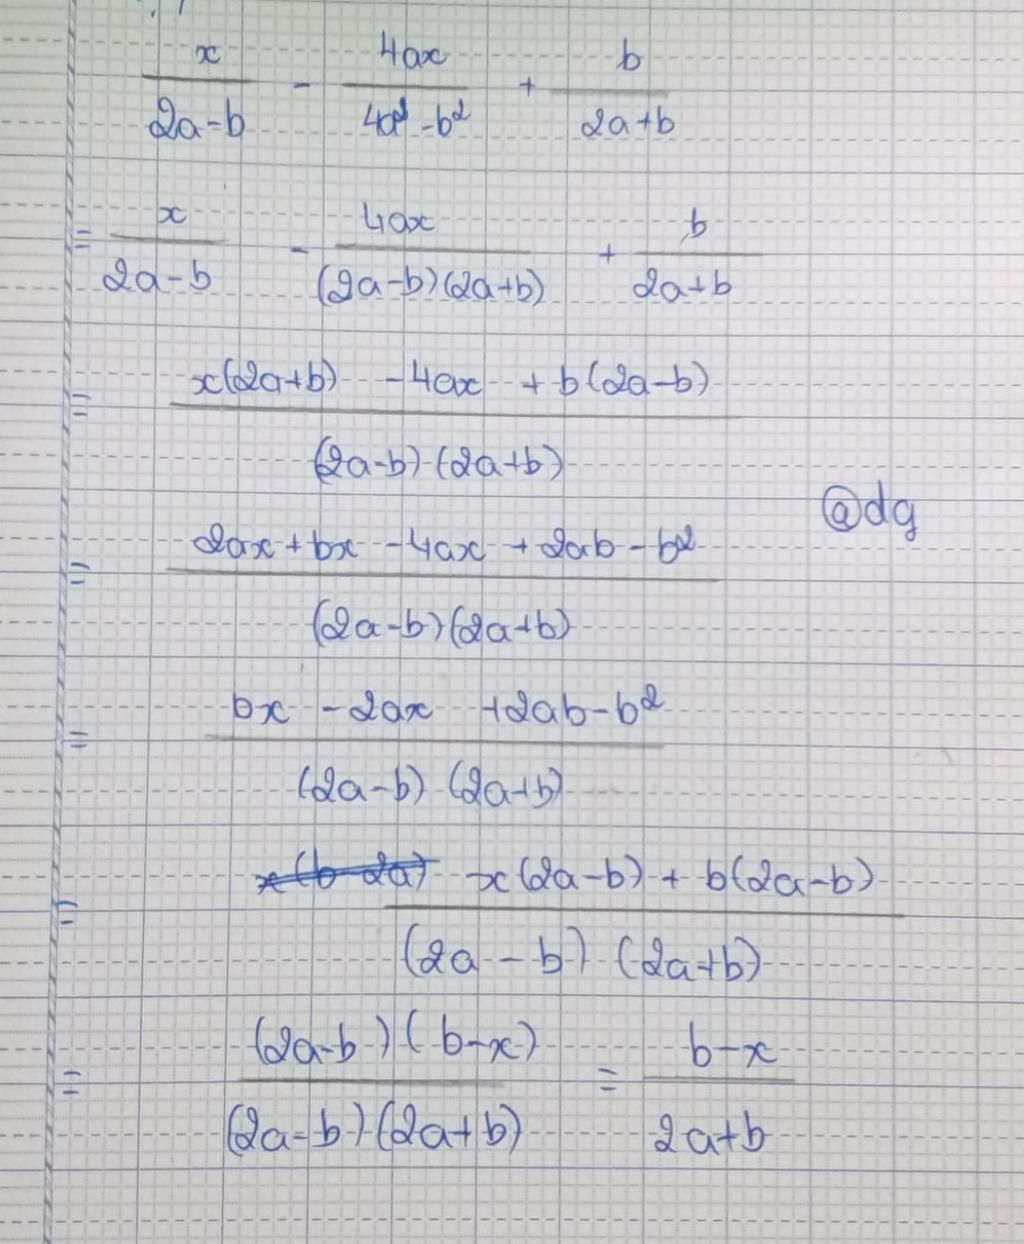 x/(2a-b) - 4ax/(4a²-b²) + b/(2a+b)
= x/(2a-b) - 4ax/((2a-b)(2a+b)) + b/(2a+b)
= (x(2a+b) - 4ax + b(2a-b))/((2a-b)(2a+b))
@dg
= (2ax + bx - 4ax + 2ab - b²)/((2a-b)(2a+b))
= (bx - 2ax + 2ab - b²)/((2a-b)(2a+b))
= (x(2a-b) + b(2a-b))/((2a-b)(2a+b))
= ((2a-b)(b-x))/((2a-b)(2a+b)) = (b-x)/(2a+b)